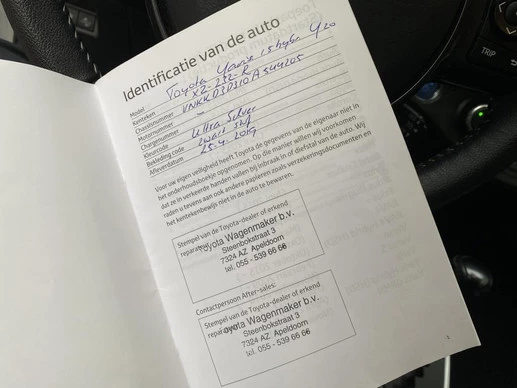 Identificatie van de auto
Model Toyota Yaris 1.5 hybr Y20
Kenteken XZ-232-R
Chassisnummer VNKKD3D310A544205
Motornummer
Chargenummer
Kleurcode Ultra Silver
Bekleding code Zwart
Afleverdatum 25-4-2019
Voor uw eigen veiligheid heeft Toyota de gegevens van de eigenaar niet in
het onderhoudsboekje opgenomen. Op die manier willen wij voorkomen
dat ze in verkeerde handen vallen bij inbraak in of diefstal van de auto. Wij
raden u tevens aan ook andere papieren zoals verzekeringsdocumenten en
het kentekenbewijs niet in de auto te bewaren.
Stempel van de Toyota-dealer of erkend
reparateur
Toyota Wagenmaker b.v.
Steenbokstraat 3
7324 AZ Apeldoorn
tel. 055 - 539 66 66
Contactpersoon After-sales:
Stempel van de Toyota-dealer of erkend
reparateur
Toyota Wagenmaker b.v.
Steenbokstraat 3
7324 AZ Apeldoorn
tel. 055 - 539 66 66
1
TRIP